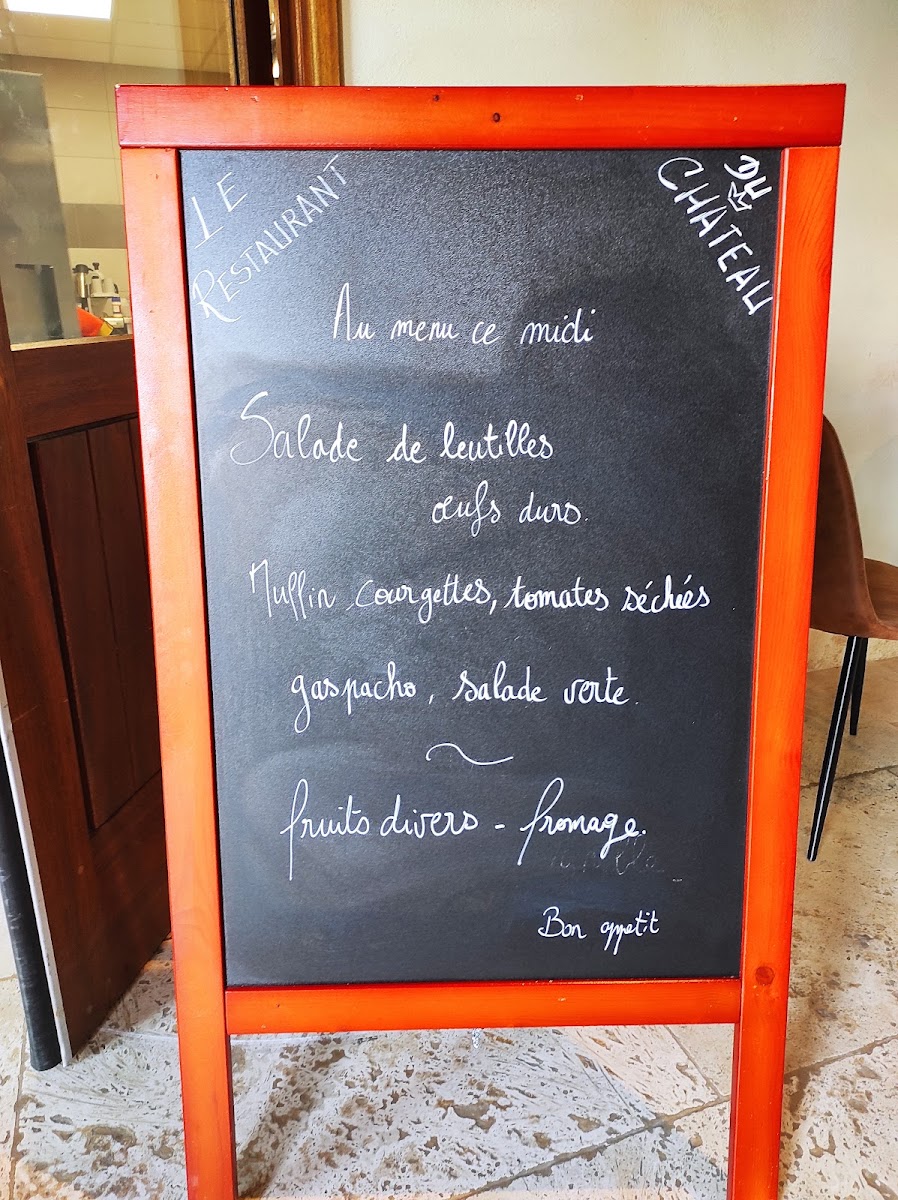 LE
RESTAURANT
DU
CHATEAU
Au menu ce midi
Salade de lentilles
œufs durs.
Muffin courgettes, tomates séchées
gaspacho, salade verte.
~
fruits divers - fromage.
Bon appetit